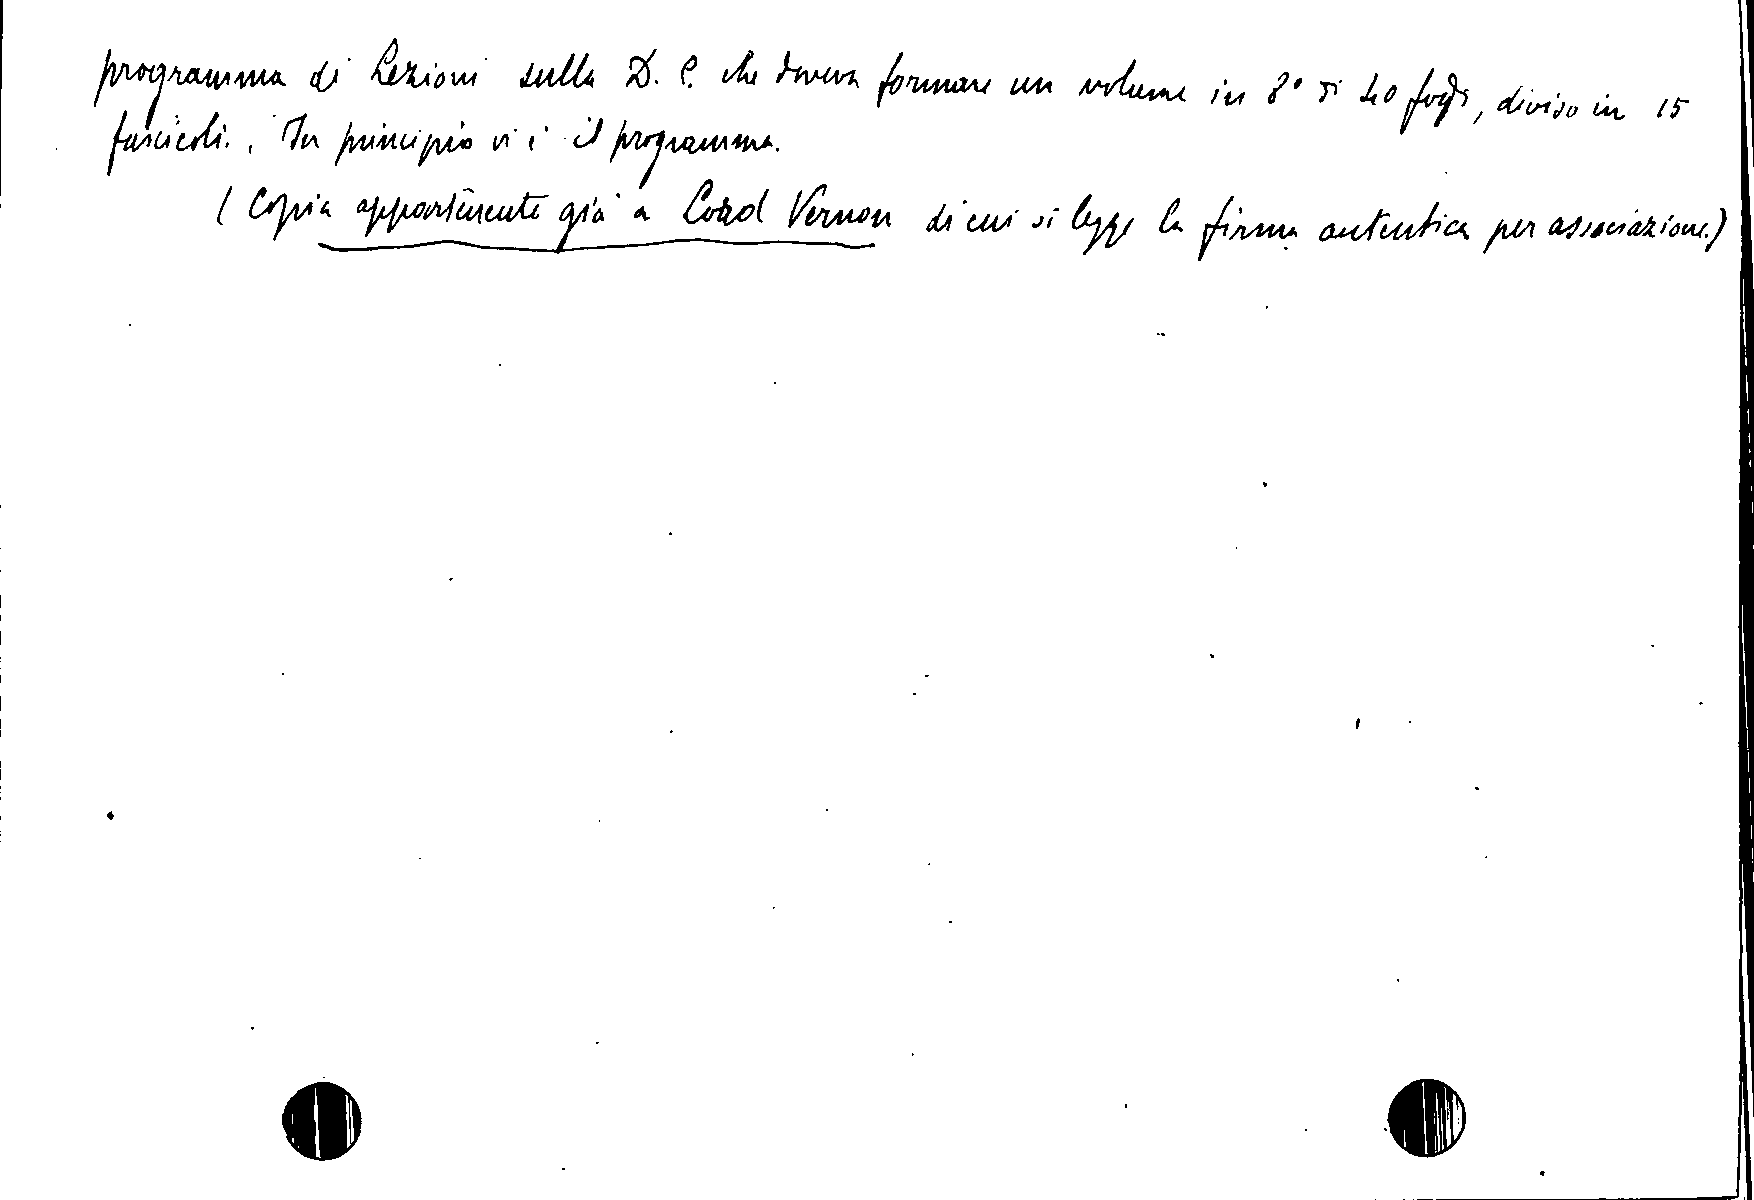 programma di Lezioni sulla D. C. che doveva formare un volume in 8° di 40 fogli, diviso in 15
fascicoli. In principio vi è il programma.
(Copia appartenente già a Lord Vernon di cui si legge la firma autentica per associazione.)